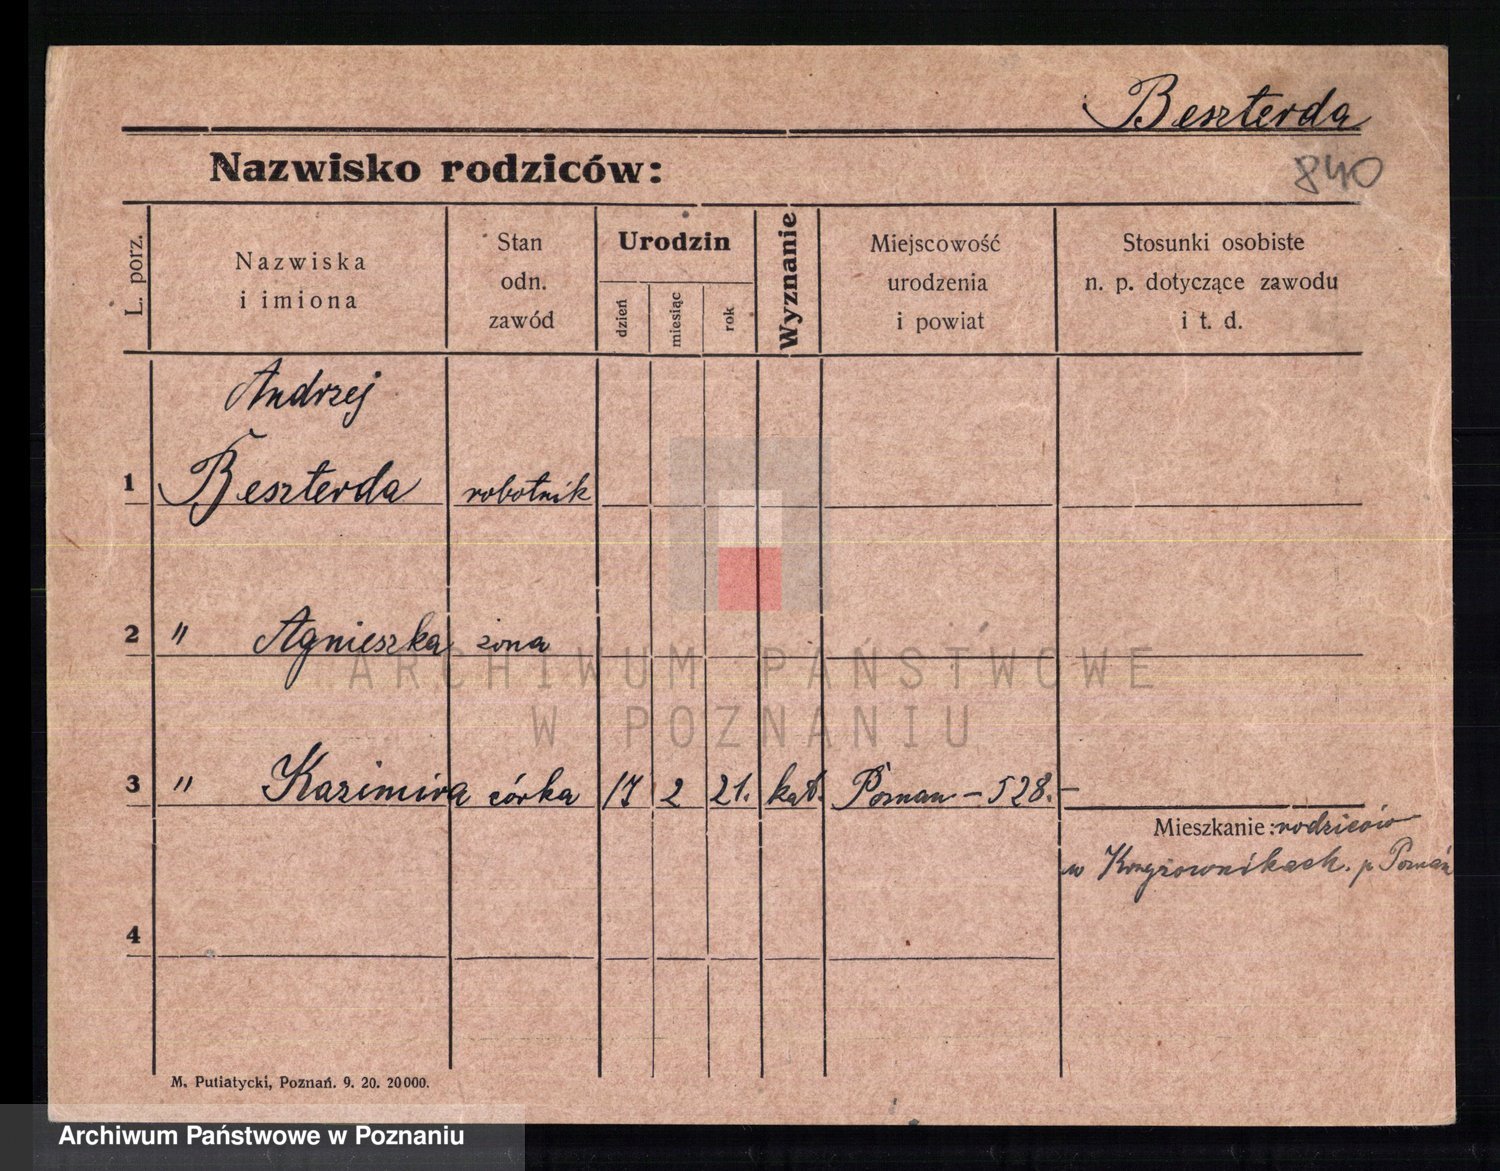 Beszterda
Nazwisko rodziców:
840
L. porz.
Nazwiska
i imiona
Stan
odn.
zawód
Urodzin
dzień
miesiąc
rok
Wyznanie
Miejscowość
urodzenia
i powiat
Stosunki osobiste
n. p. dotyczące zawodu
i t. d.
Andrzej
1 Beszterda robotnik
2 " Agnieszka żona
3 " Kazimira córka 17 2 21. kat. Poznan - 528.-
Mieszkanie: rodziców
w Krzyżownikach. p Poznań
4
M. Putiatycki, Poznań. 9. 20. 20000.
ARCHIWUM PAŃSTWOWE
W POZNANIU
Archiwum Państwowe w Poznaniu